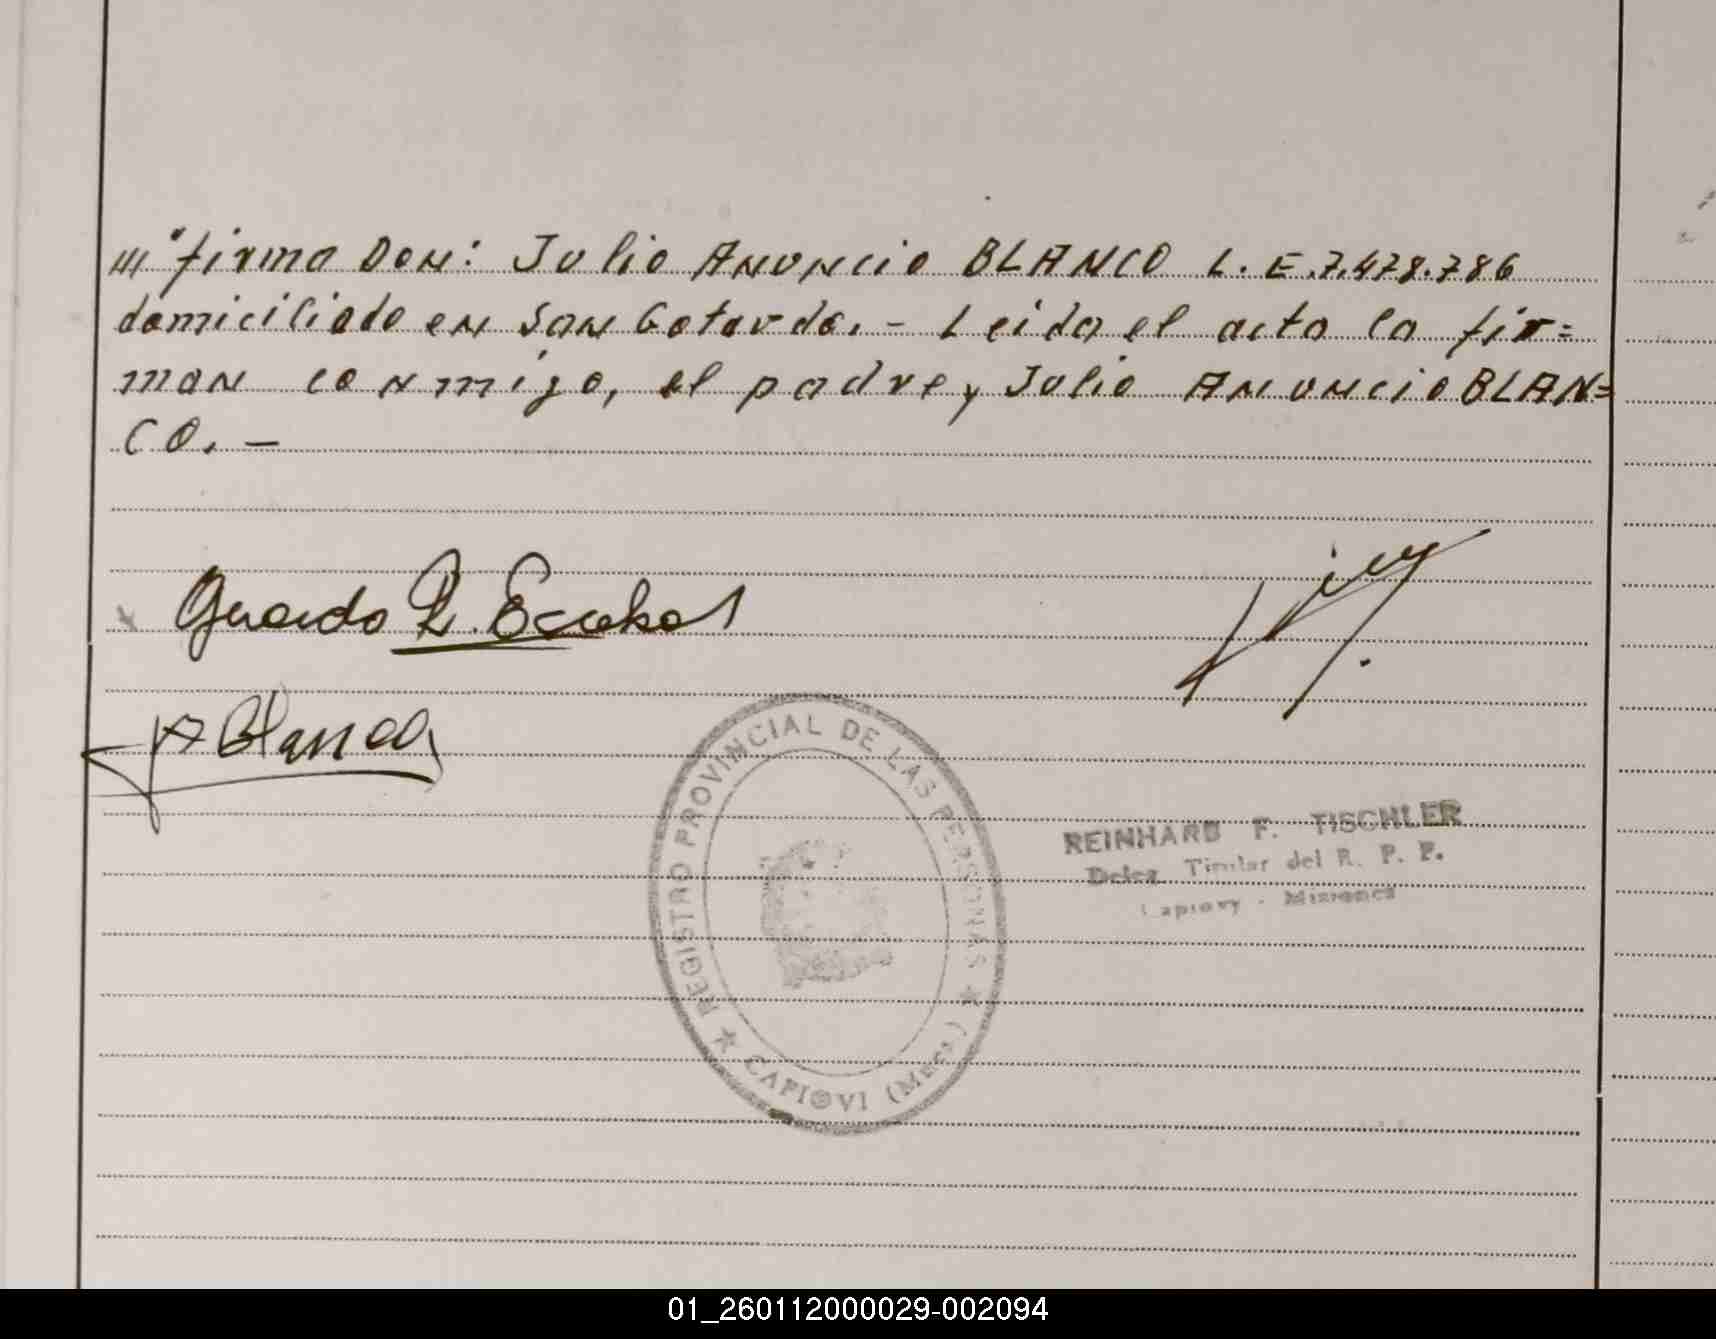 /// "firma Don: Julio Anuncio BLANCO L.E.7.478.786
domiciliado en San Gotardo. - Leida el acta la fir=
man conmigo, el padre, Julio Anuncio BLAN=
CO. -
R. Escobar
JA Blanco
REGISTRO PROVINCIAL DE LAS PERSONAS
★ CAPIOVI (Mnes.) ★
REINHARD F. TISCHLER
Deleg. Titular del R. P. P.
Capiovy - Misiones
01_260112000029-002094